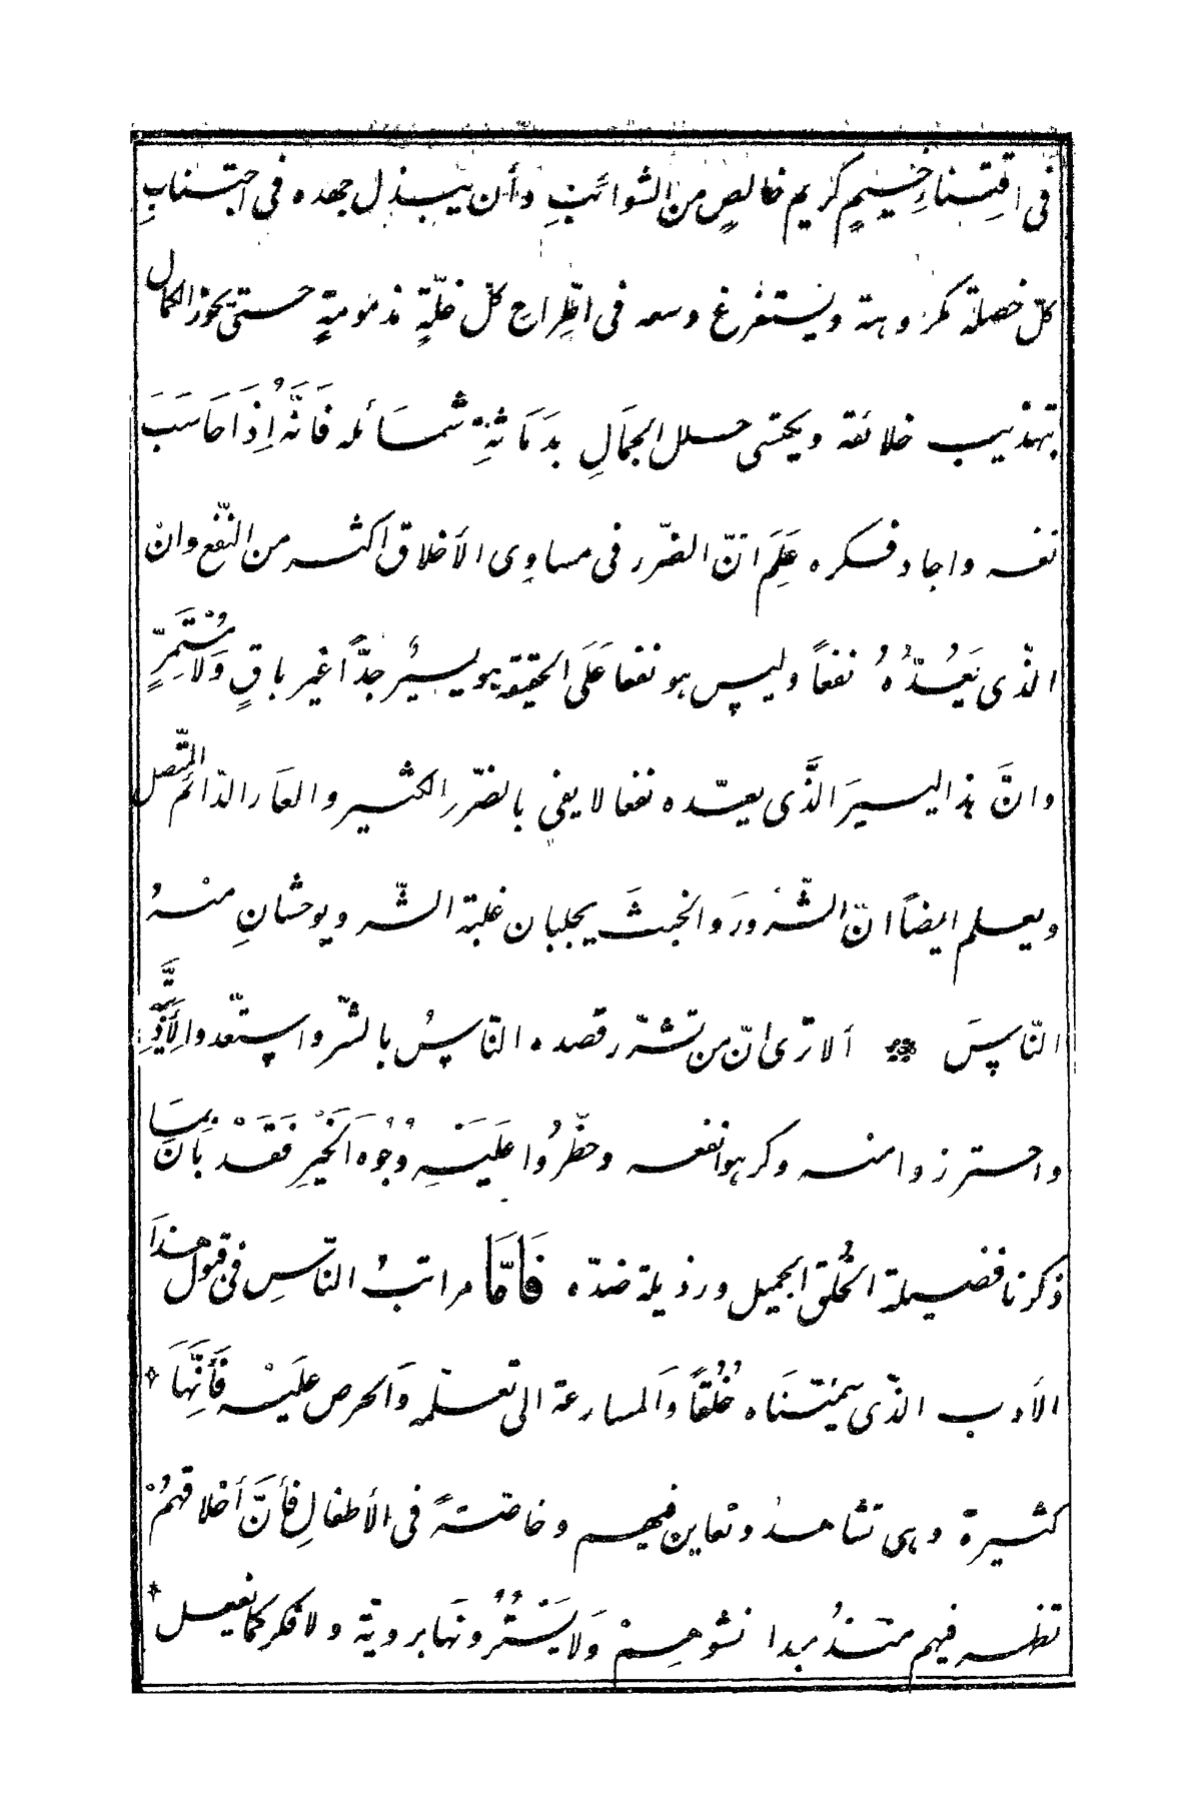 فى اقتِناءِ خِيَمٍ كريم خالصٍ من الشوائبِ وأن يبذل جهده فى اجتنابِ
كلّ خصلة مكروهة ويستفرغ وسعه فى اطِّراح كلّ خلّةٍ مذمومةٍ حتىّ يحوز الكمال
بتهذيب خلائقه ويكتسى حلل الجمَالِ بدَمَاثةِ شمَائله فَانَّهُ اِذَا حَاسَبَ
نفسه واجاد فكره عَلِمَ انّ الضّرر فى مساوِى الأخلاق اكثر من النّفع وانّ
الذّى يَعُدّهُ نفعاً وليس هو نفعا عَلَى الحقيقة هو يسيرٌ جدّاً غير باقٍ وَلا مُسْتَمِرٍّ
وانَّ هذا اليسيرَ الذَّى يعدّه نفعا لا يفي بالضرّر الكثير والعَار الدّائم المتّصل
ويعلم ايضاً انّ الشّرورَ والخبثَ يجلبان غلبة الشّر ويوحشانِ منْهُ
النّاسَ ❊ ألا ترىٰ انّ من تشرّر قصده النّاسُ بالشّر واستعّدوا لِأَذِيَّتِهِ
واحترزوا منه وكرهوا نفعه وحظّرُوا عَلَيْهِ وُجُوهَ اَلخَيْرِ فَقَدْ بَانَ بمَا
ذكرنا فضيلة الخُلق الجميل ورذيلة ضدّه فَامَّا مراتبُ النّاسِ فى قبول هذَا
الأدب الذّى سمّيْنَاه خُلُقاً وَالمسارعة الى تعلّمه وَالحرص عَليْه فَأَنّهَا
كثيرة وهى تشاهدُ وتعاين فيهم وخاصّةً فى الأطفالِ فأنَّ أخلاقهمُ
تظهر فيهم منذُ مبدا نشوهِمْ وَلا يَسْتُرُونَها برويّة ولا فكر كما يفعل